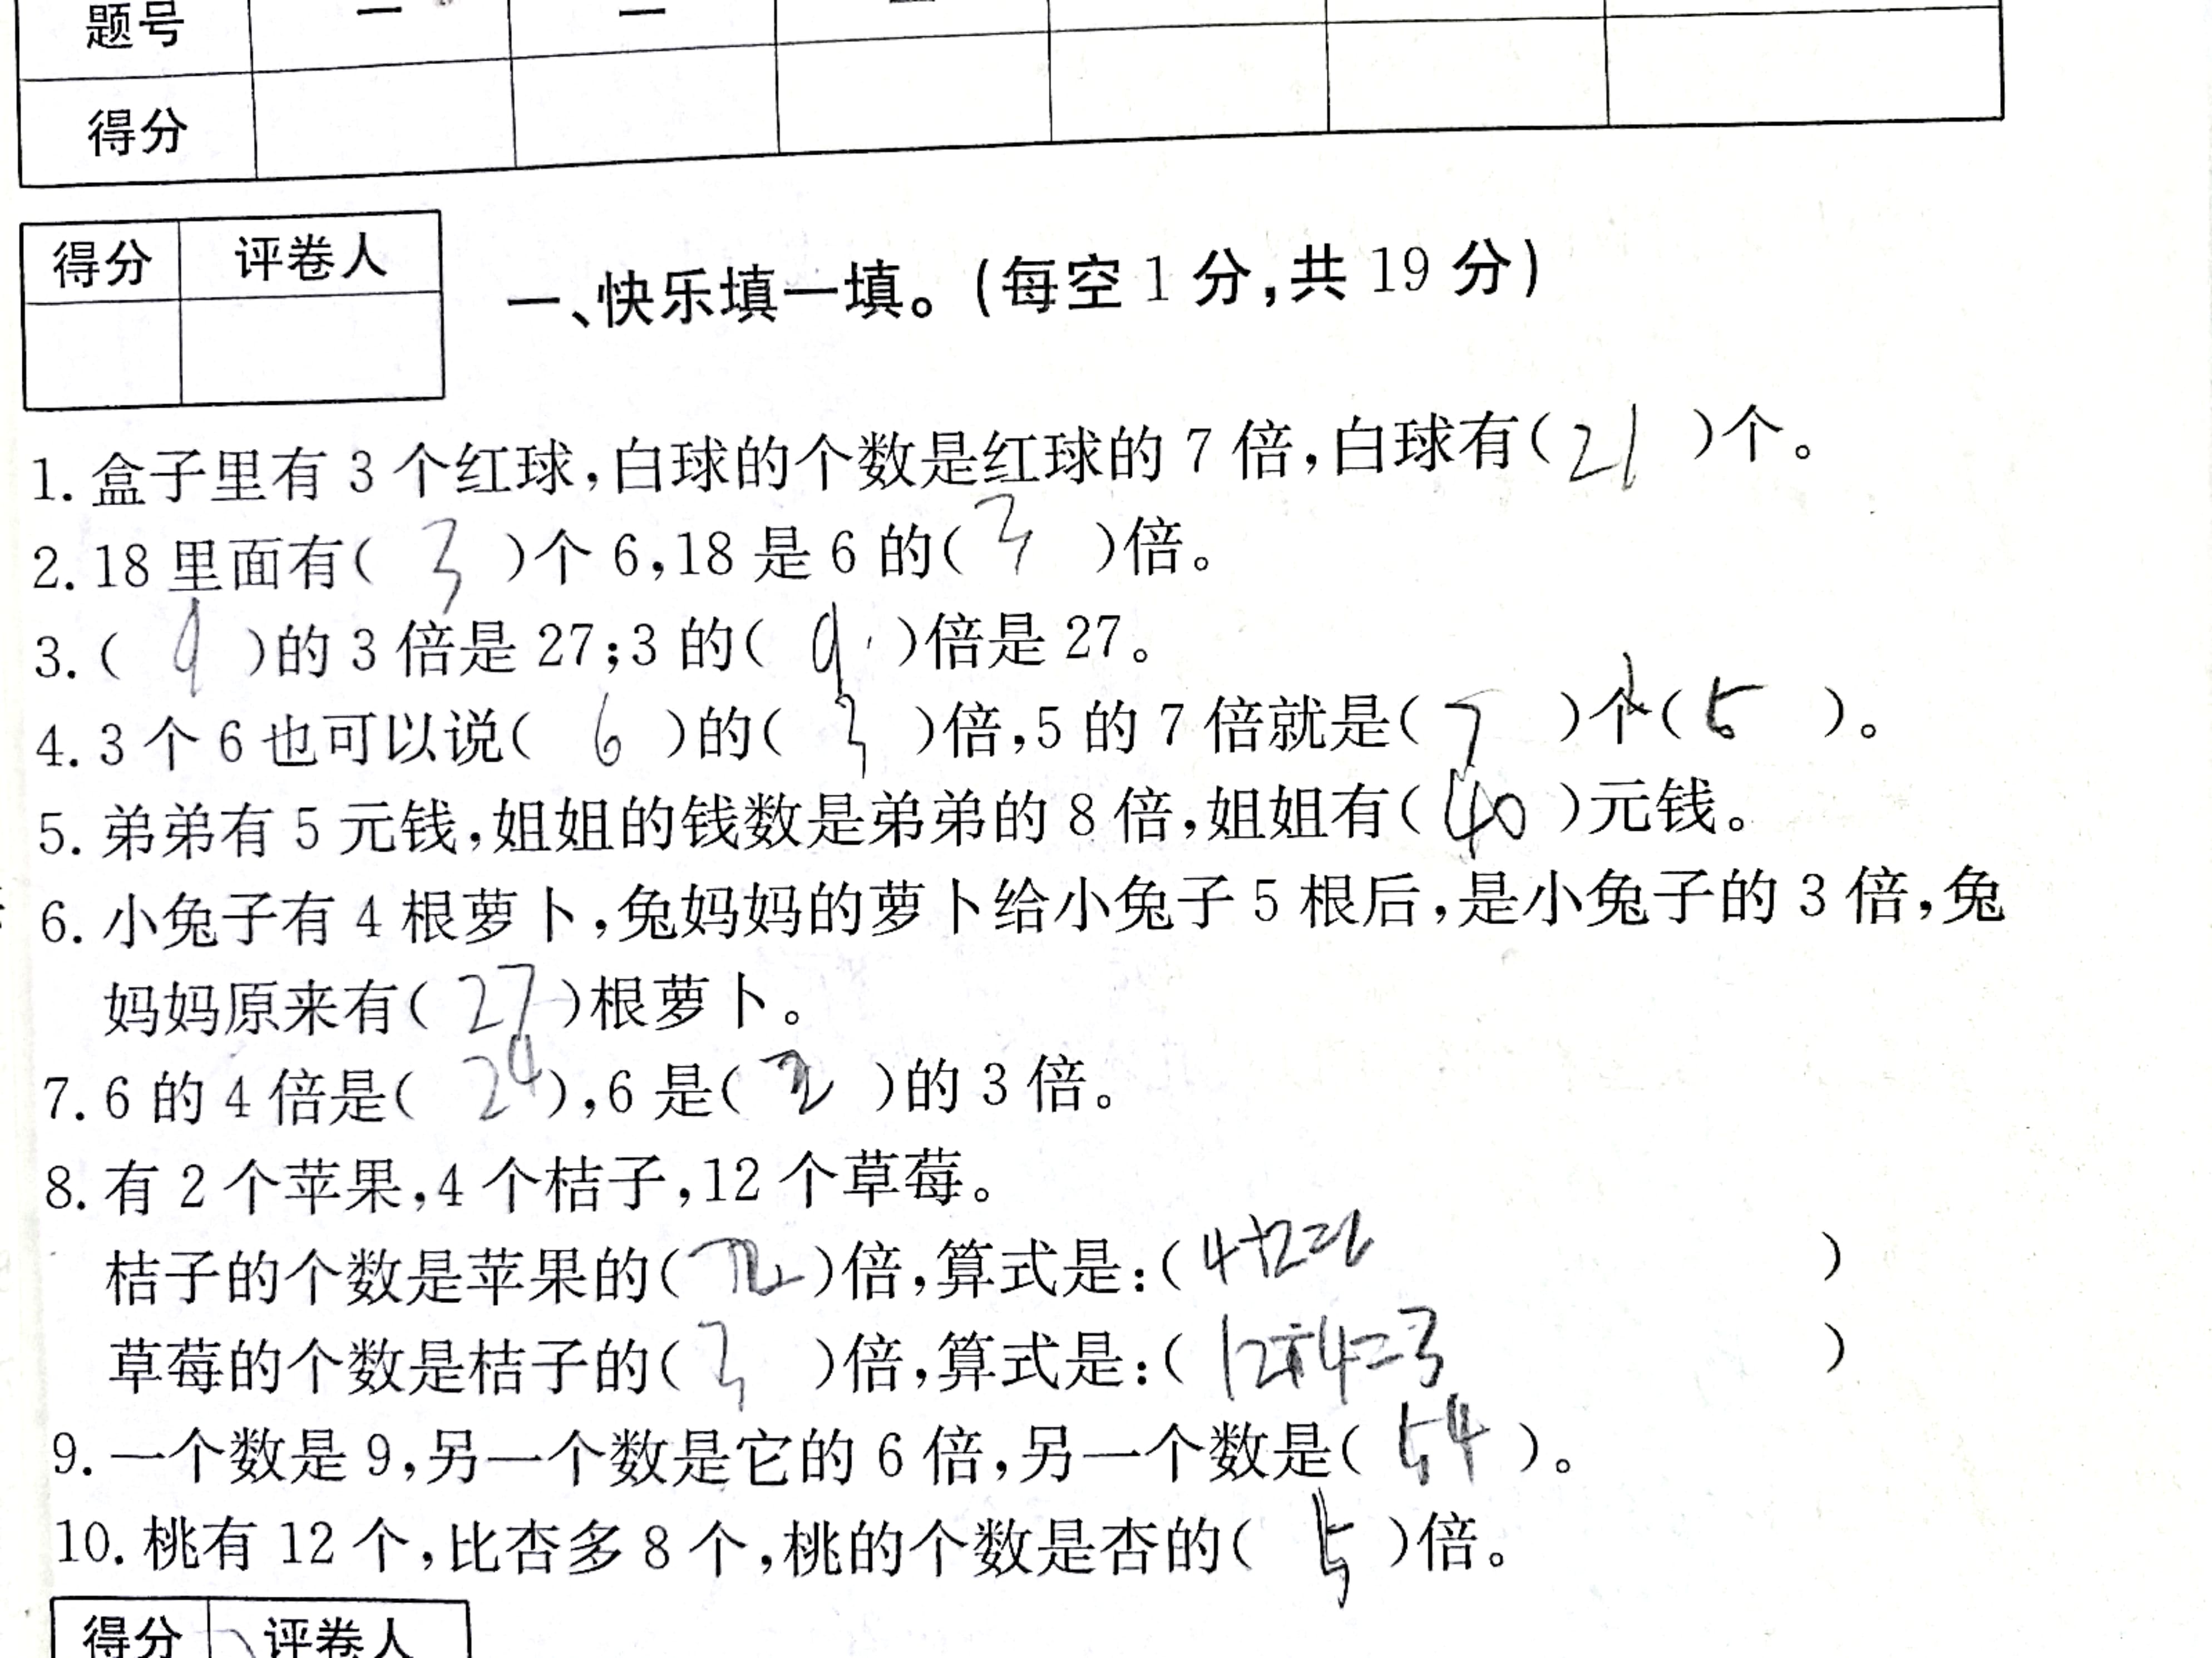 题号 一 二
得分
得分 评卷人
一、快乐填一填。(每空1分,共19分)
1. 盒子里有3个红球,白球的个数是红球的7倍,白球有(21)个。
2. 18里面有(3)个6,18是6的(3)倍。
3. (9)的3倍是27;3的(9)倍是27。
4. 3个6也可以说(6)的(3)倍,5的7倍就是(7)个(5)。
5. 弟弟有5元钱,姐姐的钱数是弟弟的8倍,姐姐有(40)元钱。
6. 小兔子有4根萝卜,兔妈妈的萝卜给小兔子5根后,是小兔子的3倍,兔
妈妈原来有(27)根萝卜。
7. 6的4倍是(24),6是(2)的3倍。
8. 有2个苹果,4个桔子,12个草莓。
桔子的个数是苹果的(2)倍,算式是:(4÷2=2)
草莓的个数是桔子的(3)倍,算式是:(12÷4=3)
9. 一个数是9,另一个数是它的6倍,另一个数是(54)。
10. 桃有12个,比杏多8个,桃的个数是杏的(5)倍。
得分 评卷人